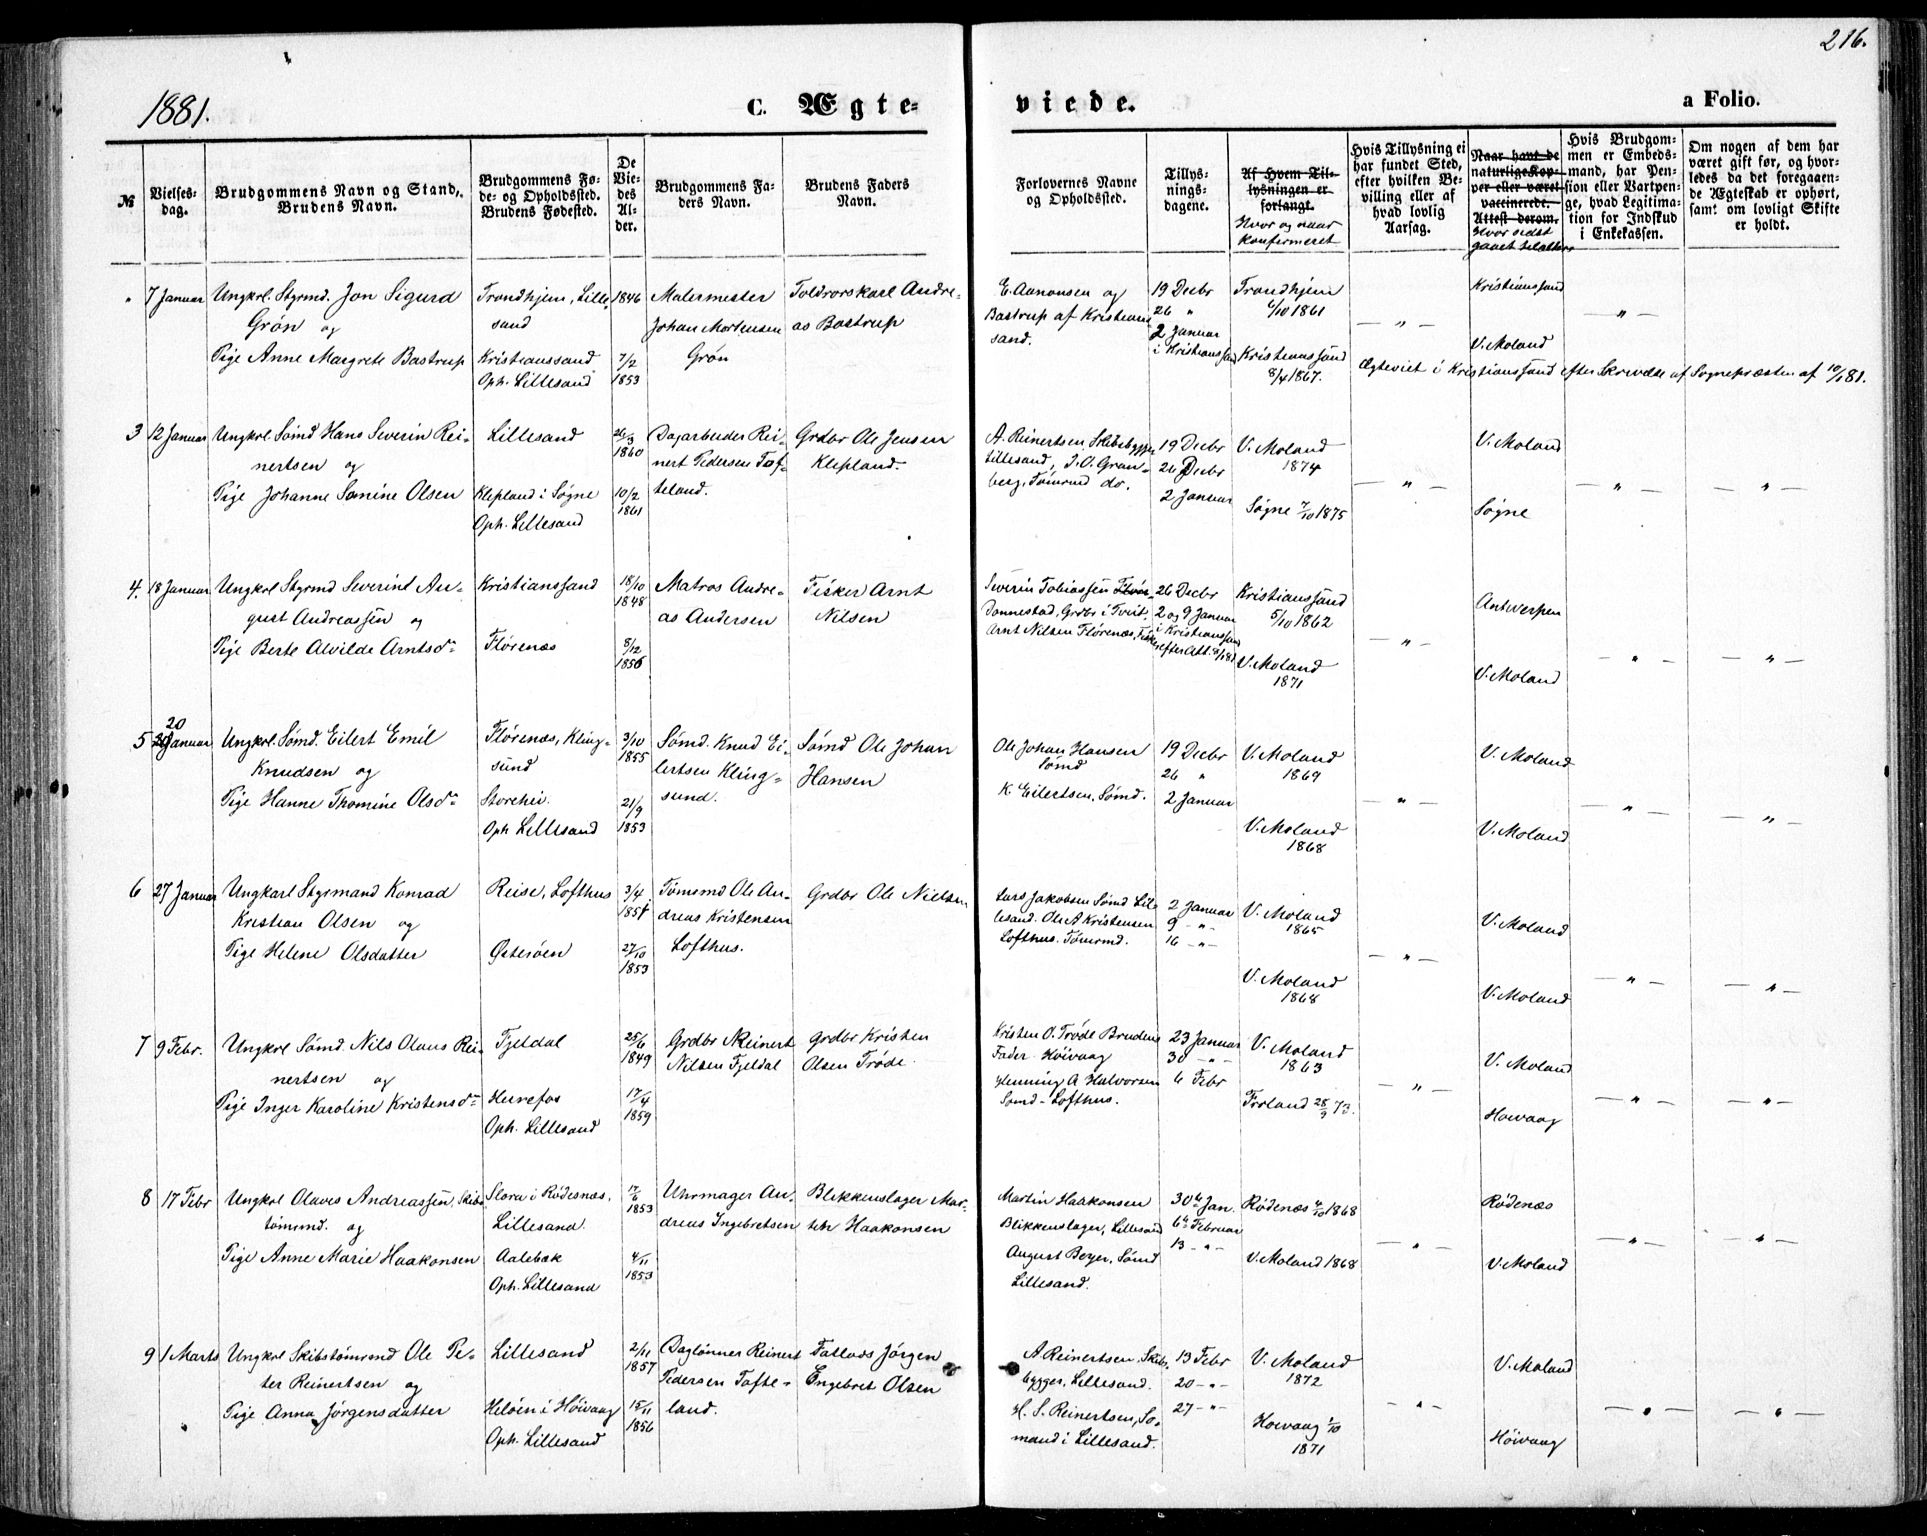 216.
1881.
C. Ægte=
viede.
a Folio.
№
Vielses-
dag.
Brudgommens Navn og Stand,
Brudens Navn.
Brudgommens Fø-
de- og Opholdssted.
Brudens Fødested.
De
Vie-
des
Al-
der.
Brudgommens Fa-
ders Navn.
Brudens Faders
Navn.
Forlovernes Navne
og Opholdssted.
Tillys-
nings-
dagene.
Af Hvem Til-
lysningen er
forlangt.
Hvor og naar
konfirmeret
Hvis Tillysning ei
har fundet Sted,
efter hvilken Be-
villing eller af
hvad lovlig
Aarsag.
Naar havt de
naturlige Kop-
per eller været
vaccinerede.
Attest derom.
Hvor sidst
gaaet til alters
Hvis Brudgom-
men er Embeds-
mand, har Pen-
sion eller Vartpen-
ge, hvad Legitima-
tion for Indskud
i Enkekassen.
Om nogen af dem har
været gift før, og hvor-
ledes da det foregaaen-
de Ægteskab er ophørt,
samt om lovligt Skifte
er holdt.
" 7 Januar Ungkrl. Styrmd. Jon Sigurd
Grön og
Pige Anne Margrete Bastrup
Trondhjem, Lille
sand
Kristianssand
Oph. Lillesand
1846
7/2
1853
Malermester
Johan Mortensen
Grön
Toldrorskarl Andre-
as Bastrup
E. Aanonsen og
Bastrup af Kristians
sand.
19 Decbr
26 "
2 Januar
i Kristianssand
Trondhjem
6/10 1861
Kristianssand
8/4 1867.
— " —
Kristianssand
V. Moland
— " —
Ægteviet i Kristianssand efter Skrivelse af Sognepræsten af 10/1 81.
3 12 Januar Ungkrl. Sømd Hans Severin Rei-
nertsen og
Pige Johanne Somine Olsen
Lillesand
Klepland i Søgne
Oph. Lillesand
26/3
1860
10/2
1861
Dagarbeider Rei-
nert Pedersen Tof-
teland.
Grdbr Ole Jensen
Klepland.
A. Reinertsen Skibsbygger
Lillesand, J. O. Gran-
berg, Tömrmd do.
19 Decbr
26 Decbr
2 Januar
V. Moland
1874
Søgne 7/10 1875
— " —
V. Moland
Søgne
— " —
— " —
4. 18 Januar Ungkrl Styrmd Severin Au-
gust Andreassen og
Pige Berte Alvilde Arntsdr
Kristianssand
Flörenæs
18/10
1848
8/12
1856
Matros Andre-
as Andersen
Fisker Arnt
Nilsen
Severin Tobiassen
Donnestad, Grdbr i Tveit.
Arnt Nilsen Flörenæs, Fisker
26 Decbr
2 og 9 Januar
i Kristianssand
efter Att.
Kristianssand
5/10 1862
V. Moland
1871
— " —
Antwerpen
V. Moland
— " —
— " —
5 20 Januar Ungkrl. Sømd. Eilert Emil
Knudsen og
Pige Hanne Thomine Olsdr
Flörenæs, Kling-
sund
Storehei.
Oph Lillesand
3/10
1855
21/9
1853
Sømd. Knud Ei-
lertsen Kling-
sund.
Sømd Ole Johan
Hansen
Ole Johan Hansen
Sømd
K. Eilertsen, Sømd.
19 Decbr
26 "
2 Januar
V. Moland
1869
V. Moland
1868
— " —
V. Moland
V. Moland
— " —
— " —
6 27 Januar Ungkarl Styrmand Konrad
Kristian Olsen og
Pige Helene Olsdatter
Reise, Lofthus
Østerøen
3/4
1851
27/10
1853
Tömrmd Ole An-
dreas Kristensen
Lofthus.
Grdbr Ole Nielsen
Lars Jakobsen Sømd Lil-
lesand. Ole A Kristensen
Lofthus. Tömrmd.
2 Januar
9 - " -
16 - " -
V. Moland
1865
V. Moland
1868
— " —
V. Moland
V. Moland
— " —
— " —
7 9 Febr. Ungkrl Sømd. Nils Olaus Rei-
nertsen og
Pige Inger Karoline Kristensdr
Fjeldal
Herrefos
Oph. Lillesand
25/6
1849
17/4
1859
Grdbr Reinert
Nilsen Fjeldal
Grdbr Kristen
Olsen Tröde.
Kristen O. Tröde Brudens
Fader Höivaag
Henning A Halvorsen
Sømd - Lofthus.
23 Januar
30 - " -
6 Febr
V. Moland
1863
Froland 28/9 73.
— " —
V. Moland
Höivaag
— " —
— " —
8 17 Febr Ungkrl Olaves Andreassen, Skibs
tömrmd. og
Pige Anne Marie Haakonsen
Slora i Rödesnæs,
Lillesand.
Aalebæk
Oph. Lillesand
17/6
1853
4/11
1853
Uhrmager An-
dreas Ingebretsen
Blikkenslager Mar-
tin Haakonsen
Martin Haakonsen
Blikkenslager, Lillesand
August Beyer, Sømd
Lillesand.
30te Jan.
6te Februar
13 - " -
Rødenæs 4/10 1868
V. Moland 1868
— " —
Rødenæs
V. Moland
— " —
— " —
9 1 Marts Ungkrl Skibstömrmd Ole Pe-
ter Reinertsen og
Pige Anna Jörgensdatter
Lillesand
Helöen i Höivaag
Oph. Lillesand
2/11
1857
15/11
1856
Daglönner Reinert
Pedersen Tofte-
land.
Jörgen
Engebret Olsen
A Reinertsen, Skibs-
bygger, Lillesand.
H. S. Reinertsen, Sø-
mand i Lillesand.
13 Febr
20 - " -
27 - " -
V. Moland
1872
Höivaag 1/10
1871
— " —
V. Moland
Höivaag
— " —
— " —